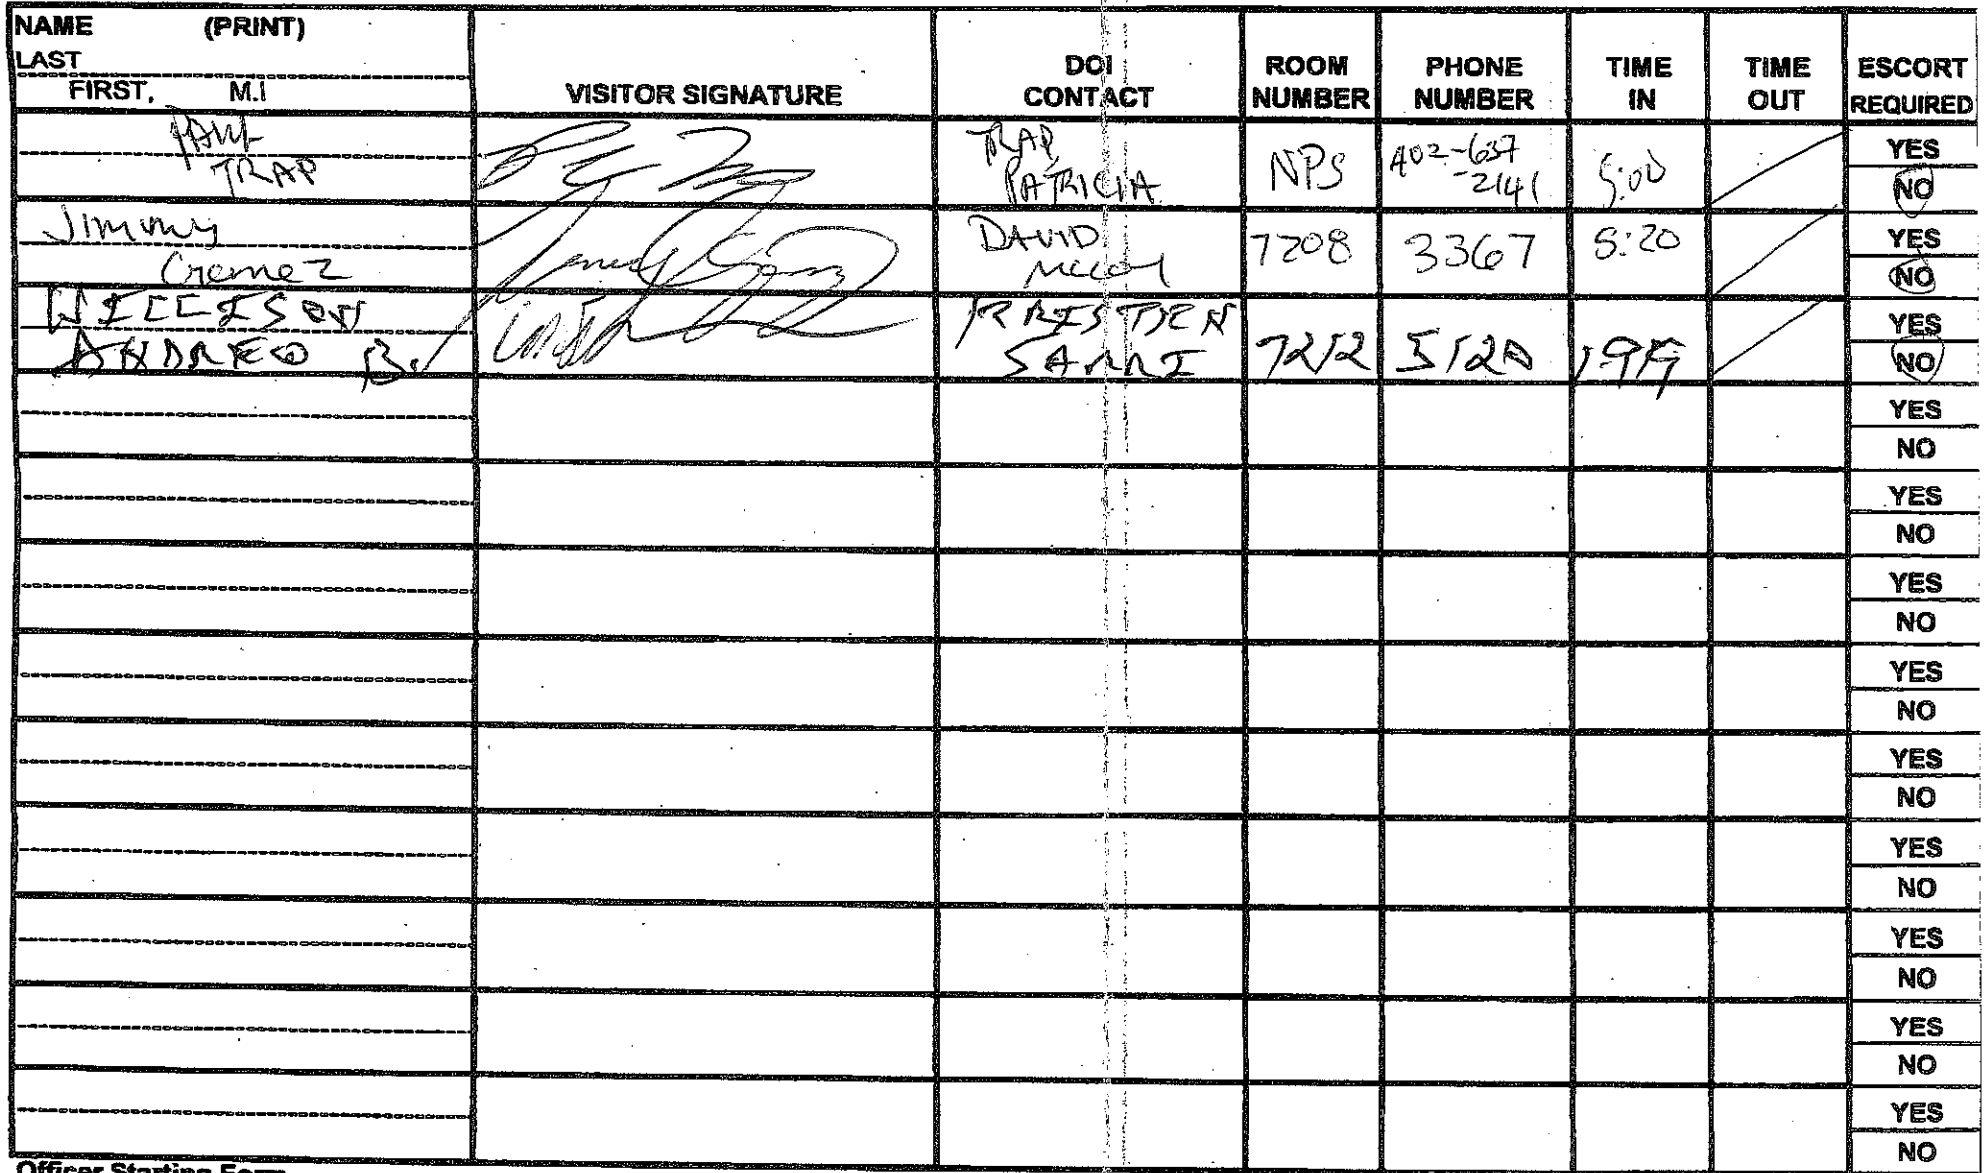 NAME (PRINT)
LAST
FIRST, M.I
VISITOR SIGNATURE
DOI CONTACT
ROOM NUMBER
PHONE NUMBER
TIME IN
TIME OUT
ESCORT REQUIRED
PAUL
TRAP
TRAP
PATRICIA
NPS
402-637
-2141
5:00
YES
NO
Jimmy
DAVID
McCoy
7208
3367
5:20
YES
NO
WILLISON
ANDREO B.
SARRI
7212
YES
NO
YES
NO
YES
NO
YES
NO
YES
NO
YES
NO
YES
NO
YES
NO
YES
NO
YES
NO
Officer Starting Form